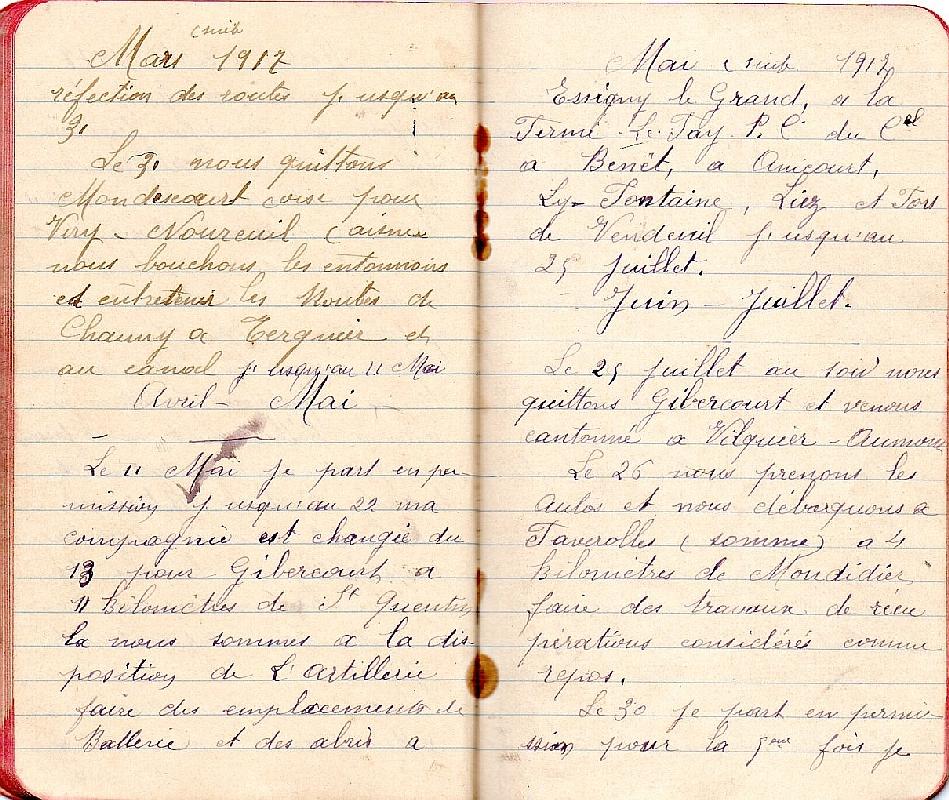 Mars (suite 1917
réfection des routes jusqu'au
30
Le 30 nous quittons
Mondescourt oise pour
Viry - Noureuil (aisne
nous bouchons les entonnoirs
et entretenir les Routes de
Chauny a Tergnier et
au canal jusqu'au 11 Mai
Avril - Mai
Le 11 Mai je part en per-
mission jusqu'au 22 ma
compagnie est changée du
13 pour Gibercourt a
11 Kilomètres de St Quentin
la nous sommes a la dis-
position de L'artillerie
faire des emplacements de
Batterie et des abris a
Mai (suite 1917
Essigny le Grand, a la
Ferme Le Fay P. C. du Cel
a Benêt, a
Ly-Fontaine, Liez et Fort
de Vendeuil jusqu'au
25 Juillet.
Juin - Juillet.
Le 25 juillet au soir nous
quittons Gibercourt et venons
cantonné a Vilquier - Aumont
Le 26 nous prenons les
Autos et nous débarquons a
Faverolles (somme) a 4
Kilomètres de Mondidier
faire des travaux de récu
pérations considérés comme
repos.
Le 30 je part en permi-
ssion pour la 5eme fois je